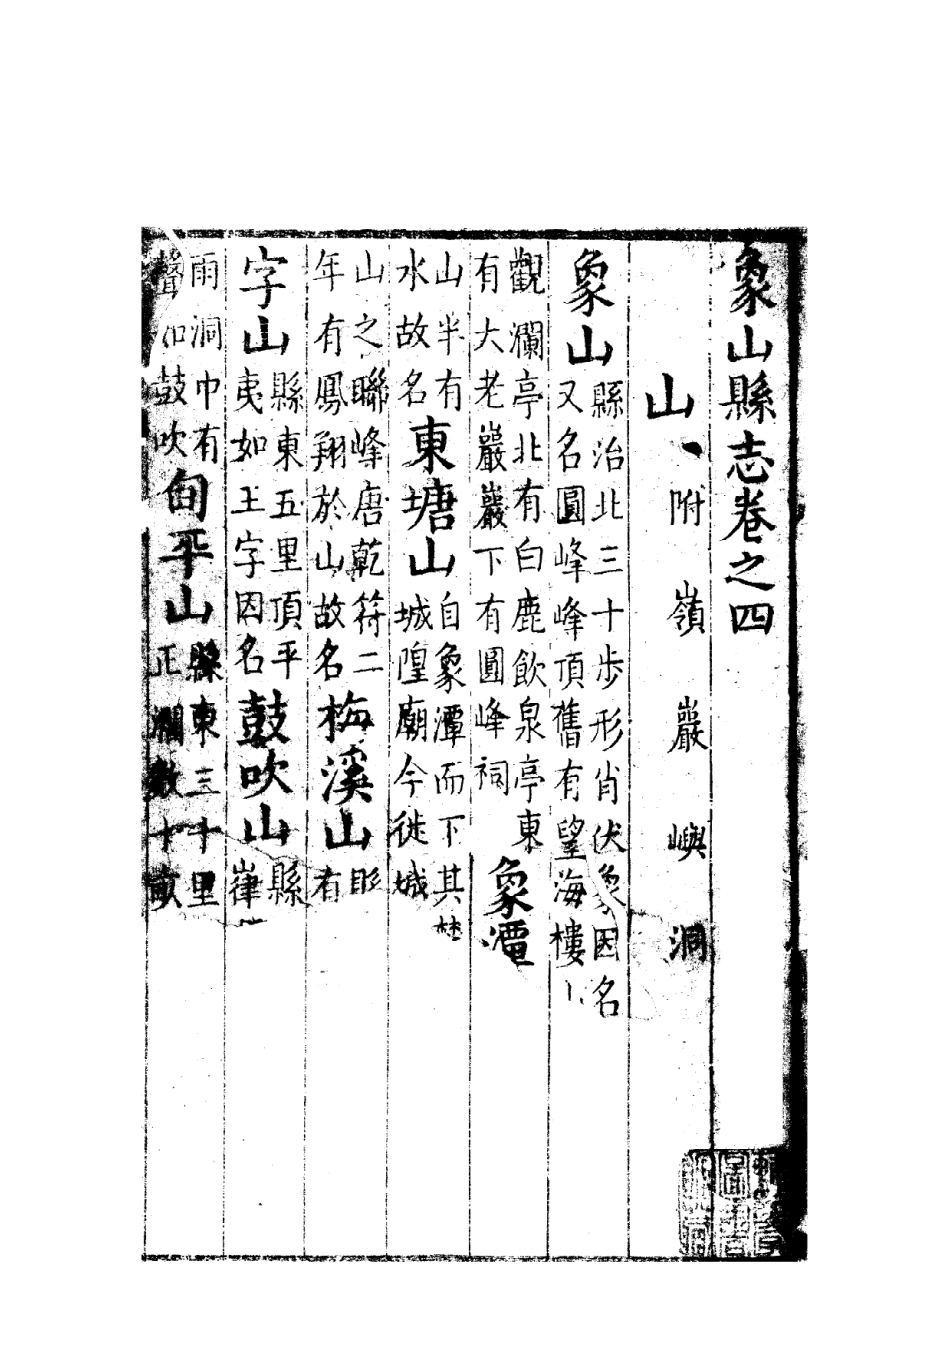 象山縣志卷之四
山、附嶺巖嶼洞
象山
縣治北三十步形肖伏象因名
又名圓峰峰頂舊有望海樓
觀瀾亭北有白鹿飲泉亭東
有大老巖巖下有圓峰祠
象潭
山半有
水故名
東塘山
自象潭而下其
城隍廟今徙城
山之聯峰唐乾符二
年有鳳翔於山故名
梅溪山
有
字山
縣東五里頂平
夷如王字因名
鼓吹山
縣
雨洞中有
聲如鼓吹
旬平山
縣東三十里
正濶數十畝